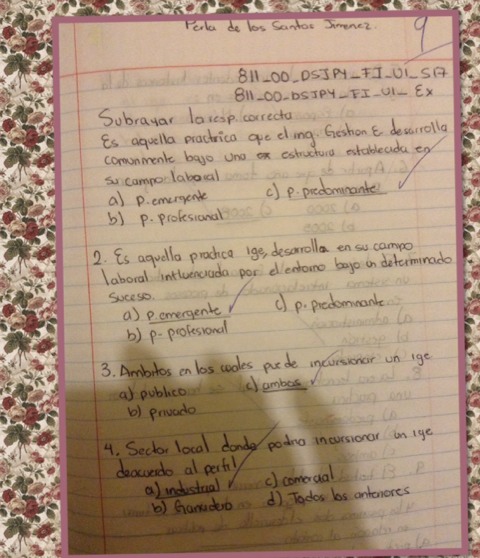 Perla de los Santos Jimenez.
9
811_00_DSJPY_FI_U1_S17
811_00_DSJPY_FI_U1_Ex
Subrayar la resp. correcta
Es aquella practrica que el ing. Gestion E. desarrolla
comunmente bajo una estructura establecida en
su campo laboral
a) p. emergente c) p. predominante
b) p. profesional
2. Es aquella practica ige, desarrolla en su campo
laboral influenciada por el entorno bajo un determinado
suceso.
a) p. emergente c) p. predominante
b) p. profesional
3. Ambitos en los cuales puede incursionar un ige
a) publico c) ambos
b) privado
4. Sector local donde podria incursionar un ige
deacuerdo al perfil
a) industrial c) comercial
b) Ganadero d) Todos los anteriores